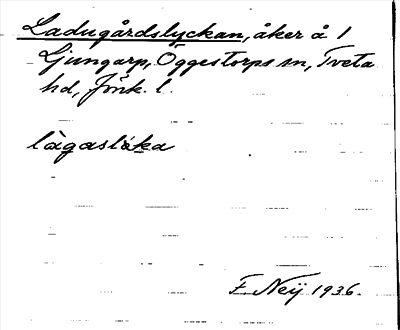 Ladugårdslyckan, åker å 1
Ljungarp, Öggestorps sn, Tveta
hd, Jönk. l.
làgaslø̀ka
F. Neij 1936.